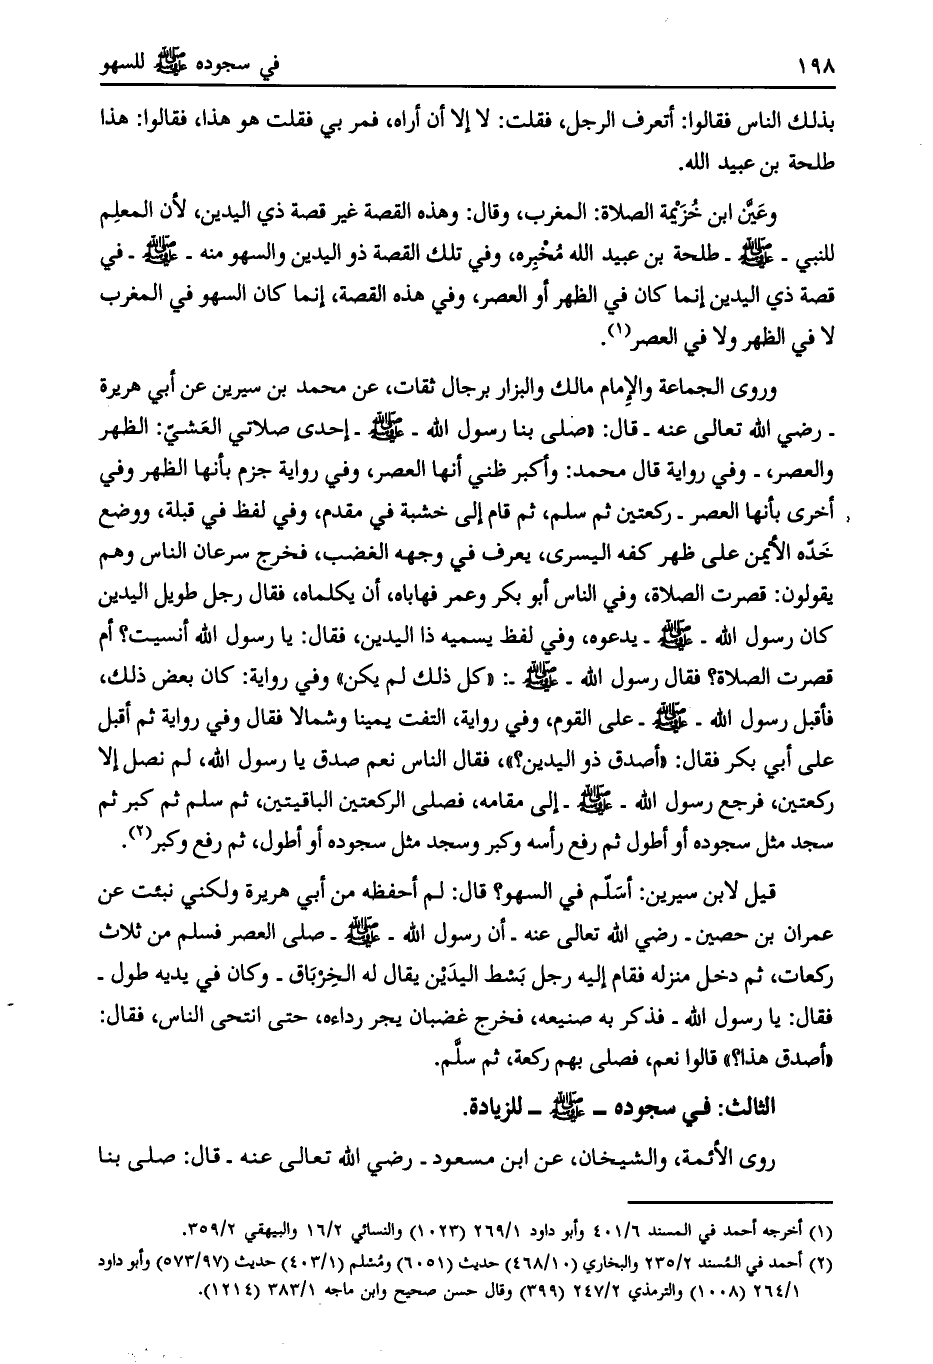 ١٩٨ في سجوده ﷺ للسهو
بذلك الناس فقالوا: أتعرف الرجل، فقلت: لا إلا أن أراه، فمر بي فقلت هو هذا، فقالوا: هذا
طلحة بن عبيد الله.
وعَيَّن ابن خُزَيْمة الصلاة: المغرب، وقال: وهذه القصة غير قصة ذي اليدين، لأن المعلِم
للنبي ـ ﷺ ـ طلحة بن عبيد الله مُخْبِره، وفي تلك القصة ذو اليدين والسهو منه ـ ﷺ ـ في
قصة ذي اليدين إنما كان في الظهر أو العصر، وفي هذه القصة، إنما كان السهو في المغرب
لا في الظهر ولا في العصر(١).
وروى الجماعة والإِمام مالك والبزار برجال ثقات، عن محمد بن سيرين عن أبي هريرة
ـ رضي الله تعالى عنه ـ قال: «صلى بنا رسول الله ـ ﷺ ـ إحدى صلاتي العَشيّ: الظهر
والعصر، ـ وفي رواية قال محمد: وأكبر ظني أنها العصر، وفي رواية جزم بأنها الظهر وفي
أخرى بأنها العصر ـ ركعتين ثم سلم، ثم قام إلى خشبة في مقدم، وفي لفظ في قبلة، ووضع
خَدّه الأيمن على ظهر كفه اليسرى، يعرف في وجهه الغضب، فخرج سرعان الناس وهم
يقولون: قصرت الصلاة، وفي الناس أبو بكر وعمر فهاباه، أن يكلماه، فقال رجل طويل اليدين
كان رسول الله ـ ﷺ ـ يدعوه، وفي لفظ يسميه ذا اليدين، فقال: يا رسول الله أنسيت؟ أم
قصرت الصلاة؟ فقال رسول الله ـ ﷺ ـ: «كل ذلك لم يكن» وفي رواية: كان بعض ذلك،
فأقبل رسول الله ـ ﷺ ـ على القوم، وفي رواية، التفت يمينا وشمالا فقال وفي رواية ثم أقبل
على أبي بكر فقال: «أصدق ذو اليدين؟»، فقال الناس نعم صدق يا رسول الله، لم نصل إلا
ركعتين، فرجع رسول الله ـ ﷺ ـ إلى مقامه، فصلى الركعتين الباقيتين، ثم سلم ثم كبر ثم
سجد مثل سجوده أو أطول ثم رفع رأسه وكبر وسجد مثل سجوده أو أطول، ثم رفع وكبر(٢).
قيل لابن سيرين: أسَلّم في السهو؟ قال: لم أحفظه من أبي هريرة ولكني نبئت عن
عمران بن حصين ـ رضي الله تعالى عنه ـ أن رسول الله ـ ﷺ ـ صلى العصر فسلم من ثلاث
ركعات، ثم دخل منزله فقام إليه رجل بَسْط اليدَيْن يقال له الخِرْبَاق ـ وكان في يديه طول ـ
فقال: يا رسول الله ـ فذكر به صنيعه، فخرج غضبان يجر رداءه، حتى انتحى الناس، فقال:
«أصدق هذا؟» قالوا نعم، فصلى بهم ركعة، ثم سلَّم.
الثالث: في سجوده ـ ﷺ ـ للزيادة.
روى الأئمة، والشيخان، عن ابن مسعود ـ رضي الله تعالى عنه ـ قال: صلى بنا
(١) أخرجه أحمد في المسند ٤٠١/٦ وأبو داود ٢٦٩/١ (١٠٢٣) والنسائي ١٦/٢ والبيهقي ٣٥٩/٢.
(٢) أحمد في المُسند ٢٣٥/٢ والبخاري (٤٦٨/١٠) حديث (٦٠٥١) ومُسْلم (٤٠٣/١) حديث (٥٧٣/٩٧) وأبو داود
٢٦٤/١ (١٠٠٨) والترمذي ٢٤٧/٢ (٣٩٩) وقال حسن صحيح وابن ماجه ٣٨٣/١ (١٢١٤).